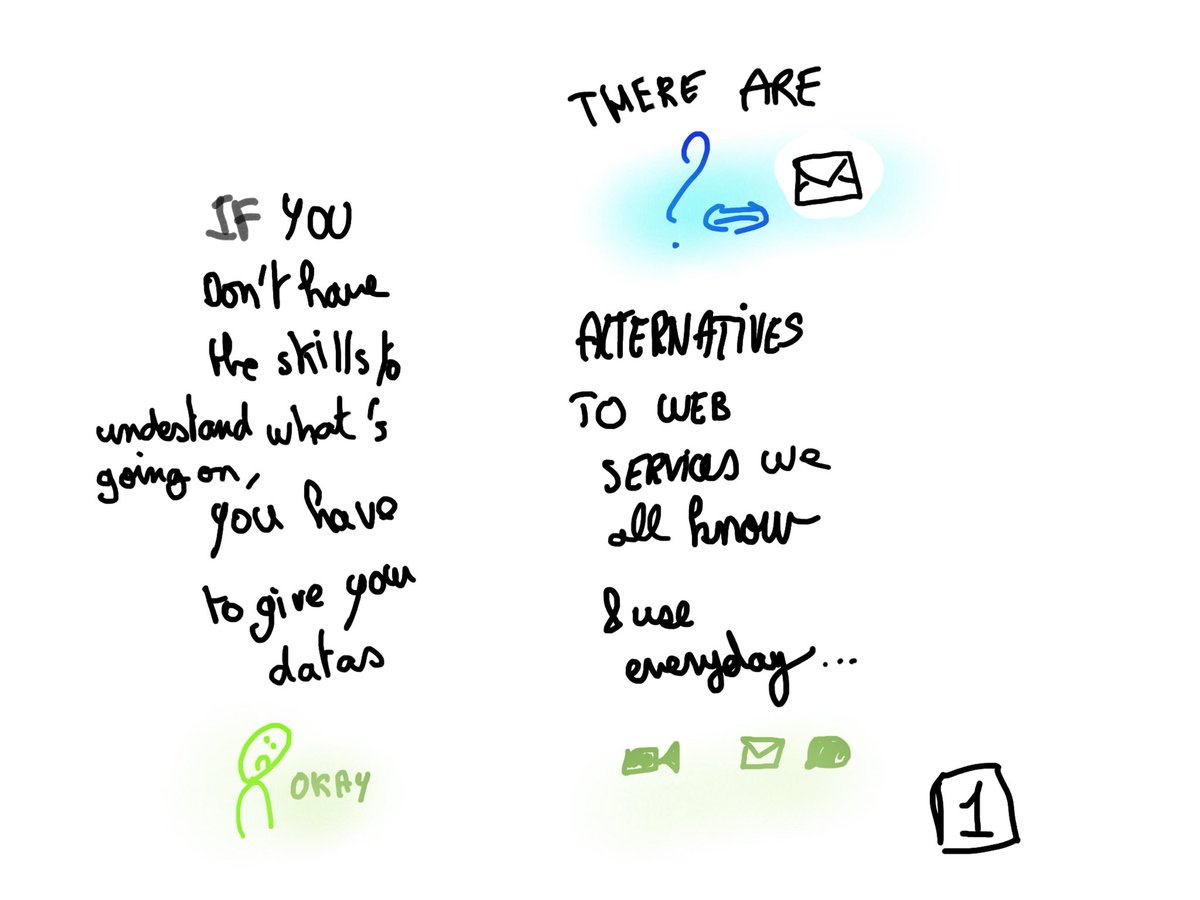 IF YOU
Don't have
the skills to
undestand what's
going on,
you have
to give your
datas
OKAY
THERE ARE
?
ALTERNATIVES
TO WEB
SERVICES we
all know
& use
everyday...
1